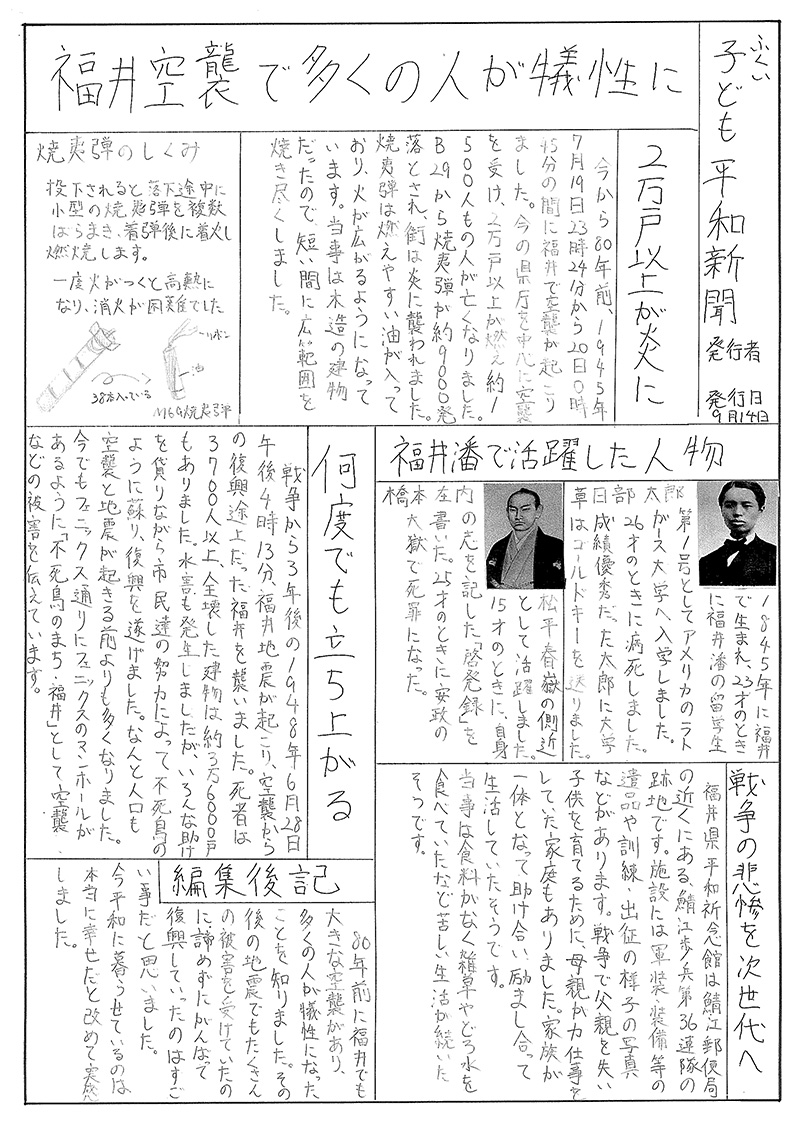 ふくい
子ども平和新聞
発行者
発行日
9月14日
福井空襲で多くの人が犠牲に
2万戸以上が炎に
今から80年前、1945年
7月19日23時24分から20日0時
45分の間に福井で空襲が起こり
ました。今の県庁を中心に空襲
を受け、2万戸以上が燃え約1
500人もの人が亡くなりました。
B29から焼夷弾が約9000発
落とされ、街は炎に襲われました。
焼夷弾は燃えやすい油が入って
おり、火が広がるようになって
います。当事は木造の建物
だったので、短い間に広範囲を
焼き尽くしました。
焼夷弾のしくみ
投下されると落下途中に
小型の焼夷弾を複数
ばらまき、着弾後に着火し
燃焼します。
一度火がつくと高熱に
なり、消火が困難でした
リボン
油
38本入っている
M69焼夷弾
福井藩で活躍した人物
日部太郎
1845年に福井
で生まれ、23才のとき
に福井藩の留学生
第1号としてアメリカのラト
ガース大学へ入学しました。
26才のときに病死しました。
成績優秀だった太郎に大学
はゴールドキーを送りました。
橋本左内
松平春嶽の側近
として活躍しました。
15才のときに、自身
の志を記した「啓発録」を
書いた。25才のときに、安政の
大獄で死罪になった。
何度でも立ち上がる
戦争から3年後の1948年6月28日
午後4時13分、福井地震が起こり、空襲から
の復興途上だった福井を襲いました。死者は
3700人以上、全壊した建物は約3万6000戸
もありました。水害も発生しましたが、いろんな助け
を貸りながら市民達の努力によって不死鳥の
ように蘇り、復興を遂げました。なんと人口も
空襲と地震が起きる前よりも多くなりました。
今でもフェニックス通りにフェニックスのマンホールが
あるように「不死鳥のまち・福井」として空襲・
などの被害を伝えています。
戦争の悲惨を次世代へ
福井県平和祈念館は鯖江郵便局
の近くにある、鯖江歩兵第36連隊の
跡地です。施設には軍装・装備等の
遺品や訓練・出征の様子の写真
などがあります。戦争で父親を失い
子供を育てるために、母親が力仕事を
していた家庭もありました。家族が
一体となって助け合い、励まし合って
生活していたそうです。
当事は食料がなく雑草やどろ水を
食べていたなど苦しい生活が続いた
そうです。
編集後記
80年前に福井でも
大きな空襲があり、
多くの人が犠牲になった
ことを知りました。その
後の地震でもたくさん
の被害を受けていたの
に諦めずにがんなで
復興していったのはすご
い事だと思いました。
今平和に暮らせているのは
本当に幸せだと改めて実感
しました。